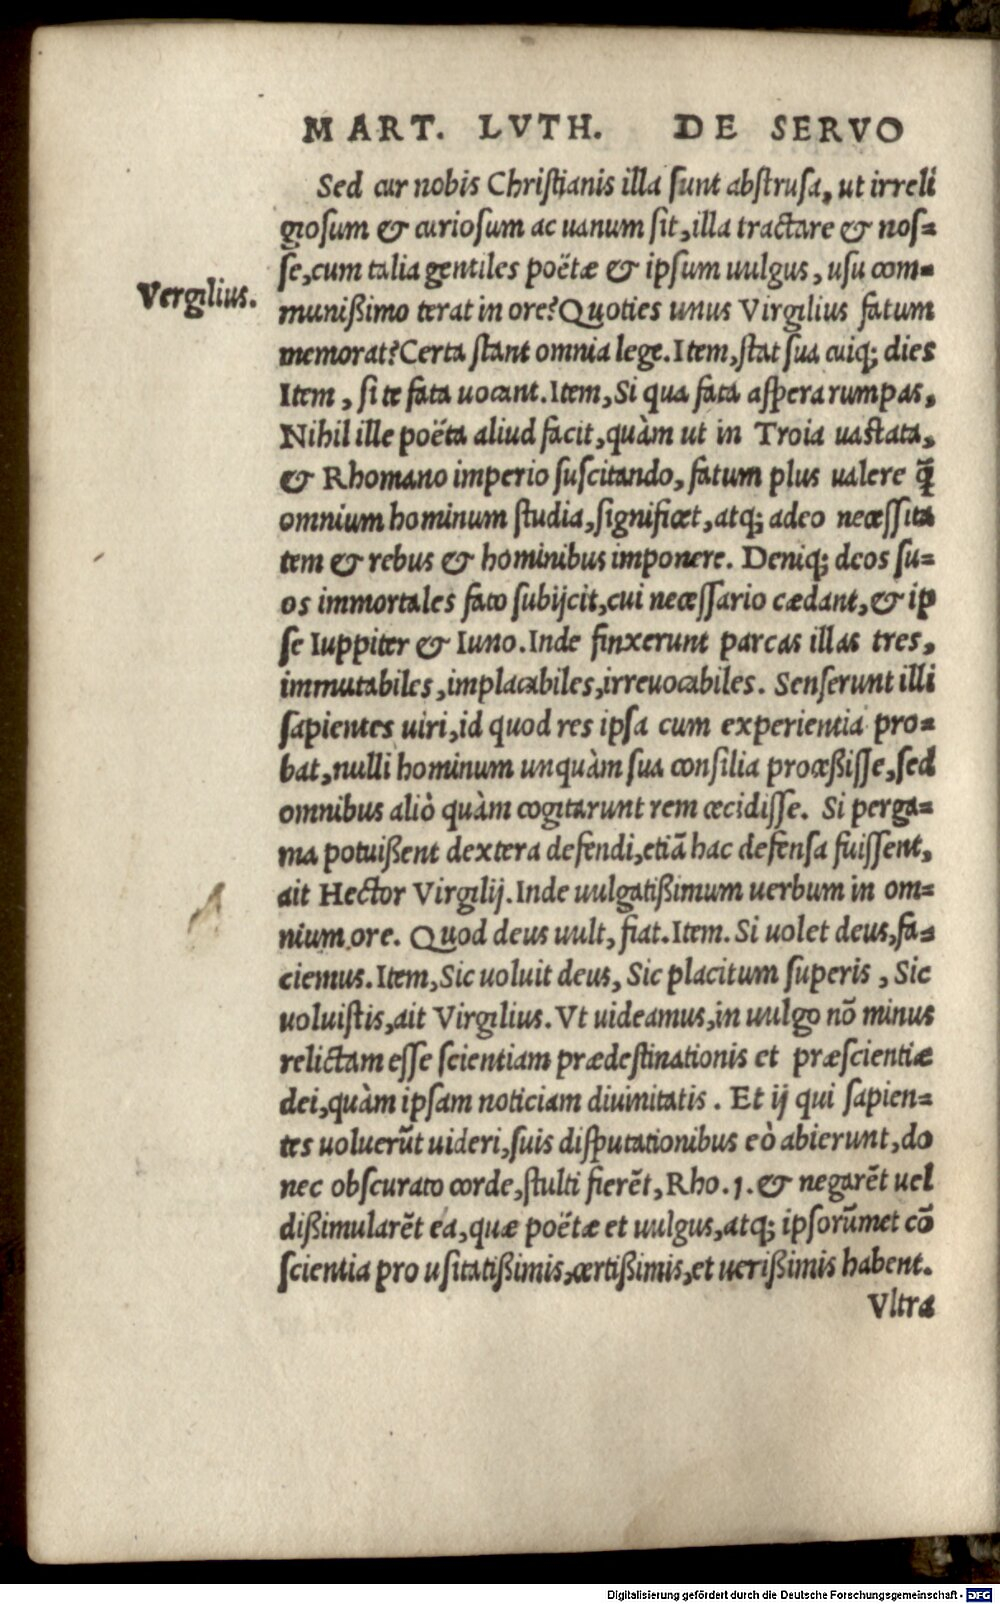 MART. LVTH. DE SERVO
Sed cur nobis Christianis illa sunt abstrusa, ut irreli
giosum & curiosum ac uanum sit, illa tractare & nos=
se, cum talia gentiles poëtæ & ipsum uulgus, usu com=
Vergilius.
munißimo terat in ore? Quoties unus Virgilius fatum
memorat? Certa stant omnia lege. Item, stat sua cuiq; dies
Item, si te fata uocant. Item, Si qua fata aspera rumpas,
Nihil ille poëta aliud facit, quàm ut in Troia uastata,
& Rhomano imperio suscitando, fatum plus ualere q̃
omnium hominum studia, significet, atq; adeo necessita
tem & rebus & hominibus imponere. Deniq; deos su=
os immortales fato subijcit, cui necessario cædant, & ip
se Iuppiter & Iuno. Inde finxerunt parcas illas tres,
immutabiles, implacabiles, irreuocabiles. Senserunt illi
sapientes uiri, id quod res ipsa cum experientia pro=
bat, nulli hominum unquàm sua consilia proceßisse, sed
omnibus aliò quàm cogitarunt rem cecidisse. Si perga=
ma potuißent dextera defendi, etiã hac defensa fuissent,
ait Hector Virgilij. Inde uulgatißimum uerbum in om=
nium ore. Quod deus uult, fiat. Item. Si uolet deus, fa=
ciemus. Item, Sic uoluit deus, Sic placitum superis, Sic
uoluistis, ait Virgilius. Vt uideamus, in uulgo nõ minus
relictam esse scientiam prædestinationis et præscientiæ
dei, quàm ipsam noticiam diuinitatis. Et ij qui sapien=
tes uoluerũt uideri, suis disputationibus eò abierunt, do
nec obscurato corde, stulti fierẽt, Rho. 1. & negarẽt uel
dißimularẽt ea, quæ poëtæ et uulgus, atq; ipsorũmet cõ
scientia pro usitatißimis, certißimis, et uerißimis habent.
Vltra
Digitalisierung gefördert durch die Deutsche Forschungsgemeinschaft - DFG